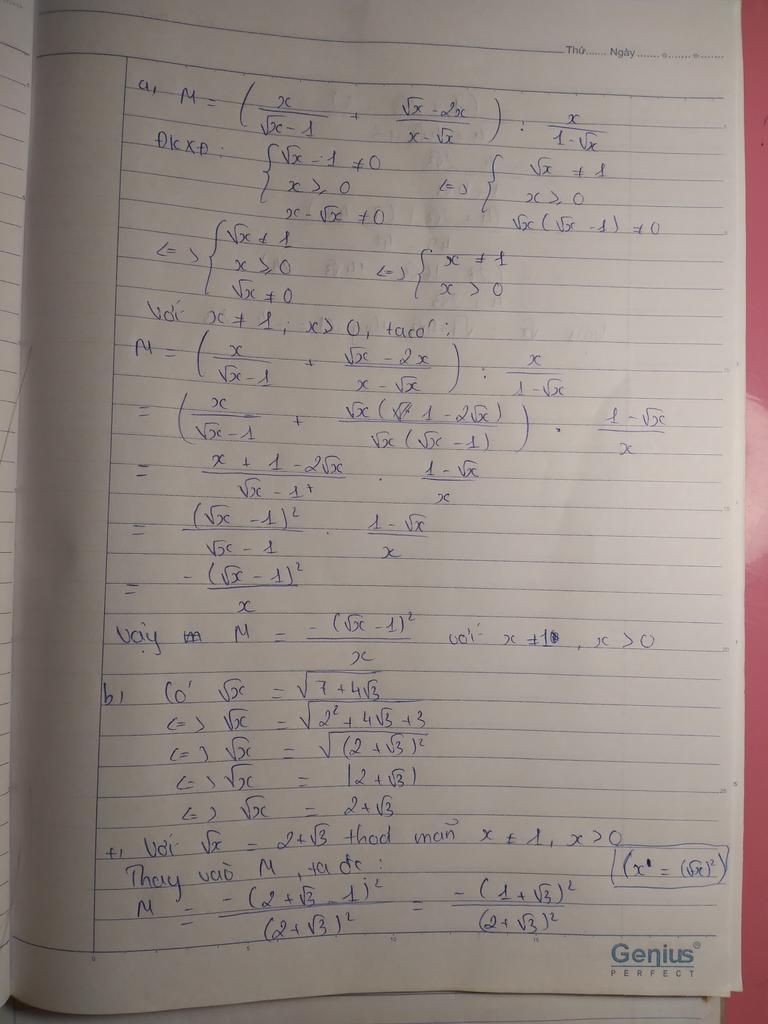 Thứ...... Ngày.......
a, M = ( x/(√x - 1) + (√x - 2x)/(x - √x) ) : x/(1 - √x)
ĐKXĐ: { √x - 1 ≠ 0 ; x ≥ 0 ; x - √x ≠ 0 <=> { √x ≠ 1 ; x ≥ 0 ; √x(√x - 1) ≠ 0
<=> { √x ≠ 1 ; x ≥ 0 ; √x ≠ 0 <=> { x ≠ 1 ; x > 0
Với x ≠ 1 ; x > 0, ta có:
M = ( x/(√x - 1) + (√x - 2x)/(x - √x) ) : x/(1 - √x)
= ( x/(√x - 1) + √x(1 - 2√x)/(√x(√x - 1)) ) . (1 - √x)/x
= (x + 1 - 2√x)/(√x - 1) . (1 - √x)/x
= (√x - 1)²/(√x - 1) . (1 - √x)/x
= -(√x - 1)²/x
Vậy M = -(√x - 1)²/x với x ≠ 1, x > 0
b, Có √x = √(7 + 4√3)
<=> √x = √(2² + 4√3 + 3)
<=> √x = √((2 + √3)²)
<=> √x = |2 + √3|
<=> √x = 2 + √3
+, Với √x = 2 + √3 thoả mãn x ≠ 1, x > 0
Thay vào M, ta đc: (x = (√x)²)
M = -(2 + √3 - 1)²/(2 + √3)² = -(1 + √3)²/(2 + √3)²
Genius
PERFECT